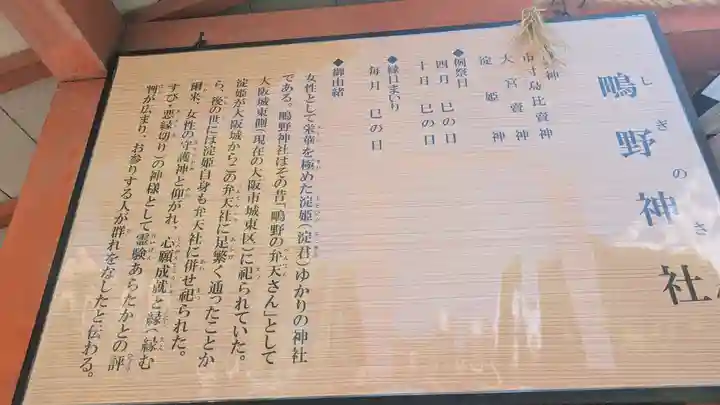 鴫野神社
神
市寸島比賣神
大宮賣神
淀姫神
◆例祭日
四月 巳の日
十月 巳の日
◆縁日まいり
毎月 巳の日
◆御由緒
女性として栄華を極めた淀姫(淀君)ゆかりの神社
である。鴫野神社はその昔「鴫野の弁天さん」として
大阪城東側(現在の大阪市城東区)に祀られていた。
淀姫が大阪城からこの弁天社に足繁く通ったことか
ら、後の世には淀姫自身も弁天社に併せ祀られた。
爾来、女性の守護神と仰がれ、心願成就と縁(縁む
すび・悪縁切り)の神様として霊験あらたかとの評
判が広まり、お参りする人が群れをなしたと伝わる。